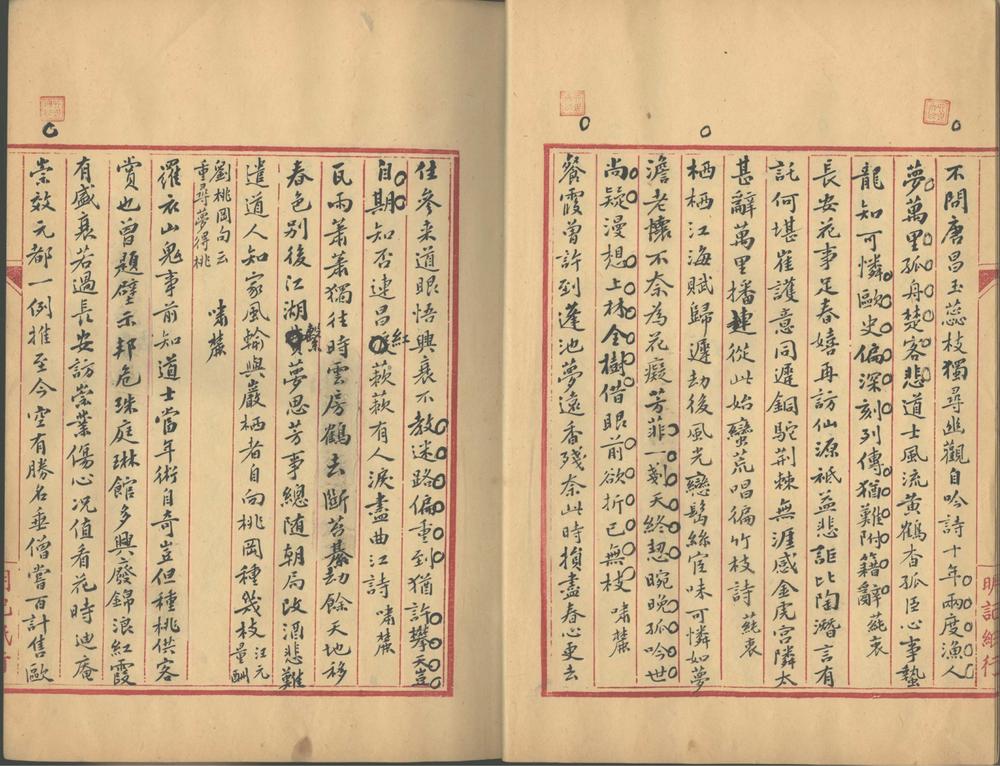 不問唐昌玉蕊枝獨尋幽觀自吟詩十年兩度漁人
夢萬里孤舟楚客悲道士風流黃鶴杳孤臣心事蟄
龍知可憐歐史偏深刻列傳猶難附籍辭 蕘衷
長安花事足春嬉再訪仙源祗益悲詎比陶潛言有
託何堪崔護意同遲銅駝荊棘無涯感金虎宮隣太
甚辭萬里播遷從此始蠻荒唱徧竹枝詩 蕘衷
栖栖江海賦歸遲劫後風光戀鬢絲宦味可憐如夢
澹老懷不奈為花癡芳菲一剗天終愬晼晚孤吟世
尚疑漫想上林全樹借眼前欲折已無枝 嘯麓
餐霞曾許到蓬池夢遠香殘奈此時損盡春心更去
住參來道眼悟興衰不教迷路偏重到猶許攀天豈
自期知否連昌紅蔌蔌有人淚盡曲江詩 嘯麓
瓦雨蕭蕭獨往時雲房鶴去斷苔綦劫餘天地移
春色別後江湖繫夢思芳事總隨朝局改酒悲難
遣道人知家風輪與巖栖者自向桃岡種幾枝 汪元量酬
劉桃岡句云重尋夢得桃 嘯麓
羅衣山鬼事前知道士當年術自奇豈但種桃供客
賞也曾題壁示邦危珠庭琳館多興廢錦浪紅霞
有盛衰若過長安訪崇業傷心況值看花時 迪庵
崇效元都一例推至今空有勝名垂僧嘗百計售歐
明記紙行